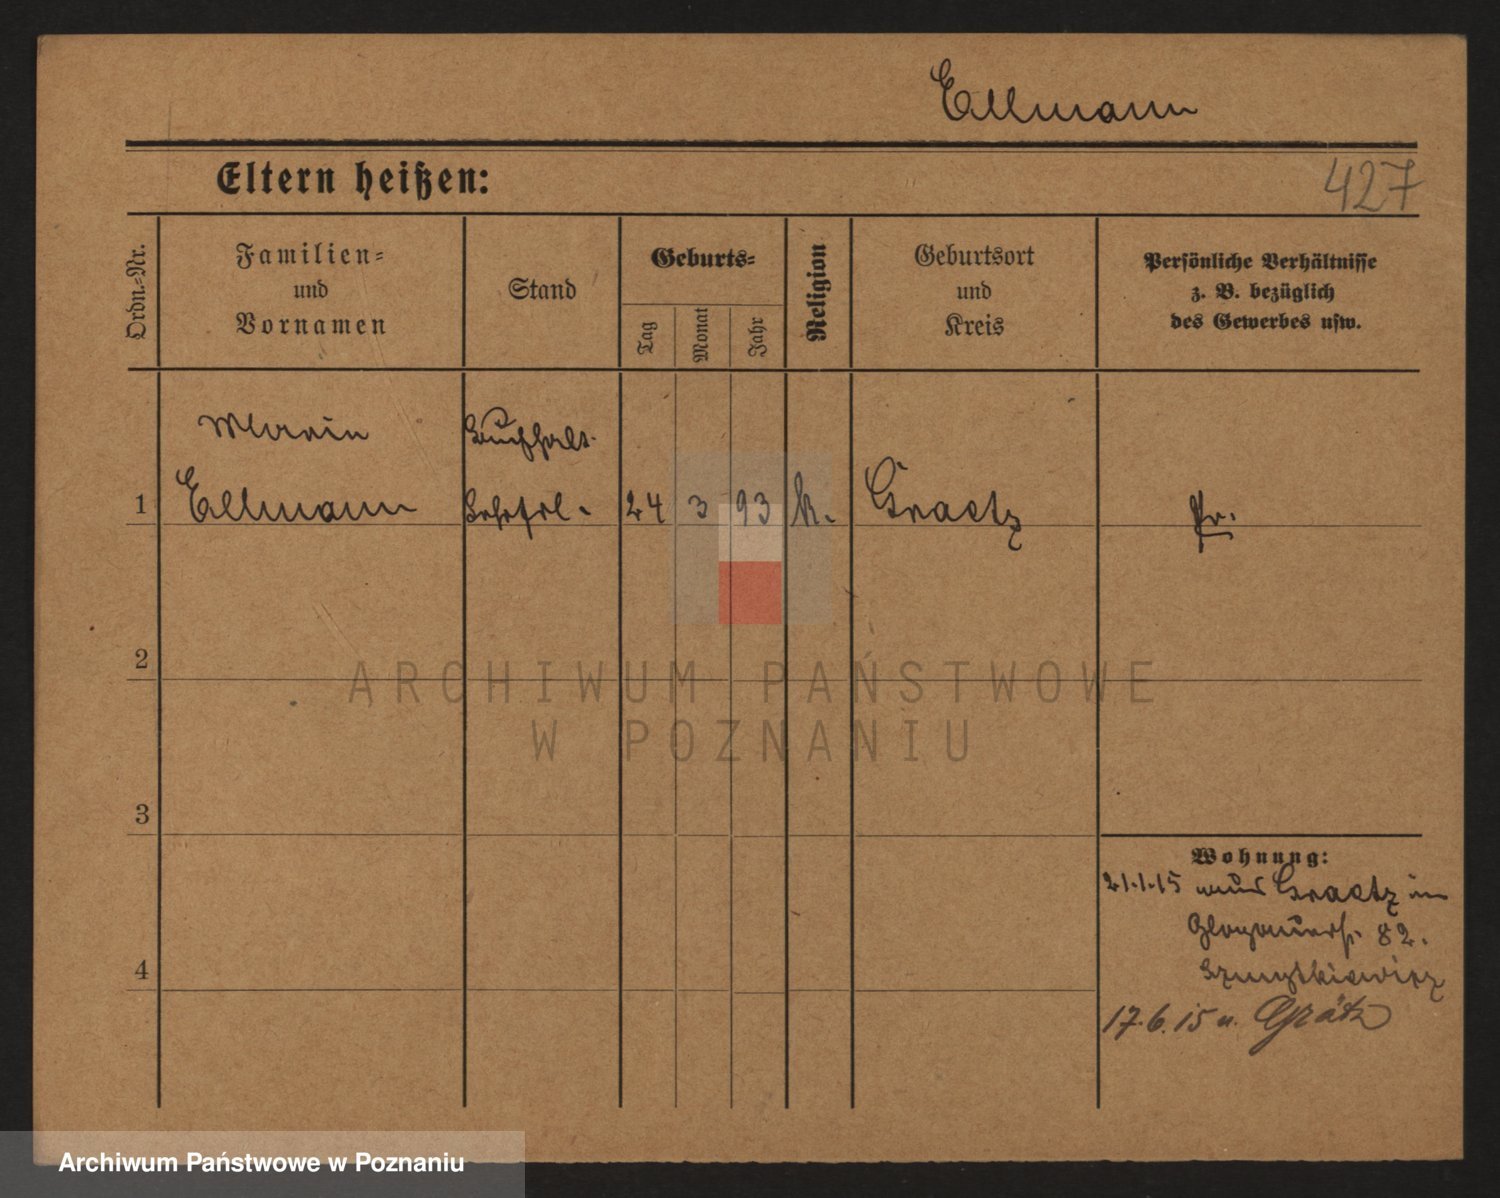 Ellmann
Eltern heißen:
427
Ordn.-Nr.
Familien-
und
Vornamen
Stand
Geburts-
Tag
Monat
Jahr
Religion
Geburtsort
und
Kreis
Persönliche Verhältnisse
z. B. bezüglich
des Gewerbes usw.
Maria
Buchhalt.
1
Ellmann
24
3
93
k.
Graetz
Pr.
2
ARCHIWUM PAŃSTWOWE
W POZNANIU
3
Wohnung:
21.1.15 aus Graetz in
Glogauerstr. 82.
4
17.6.15 n. Grätz
Archiwum Państwowe w Poznaniu